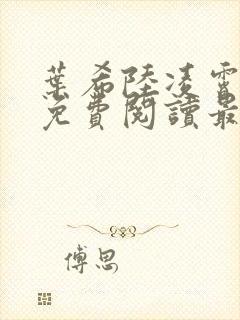 葉希陸凌霄
免費閱讀最
傅思